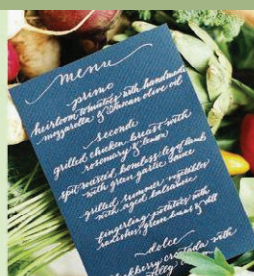 menu
primo
heirloom tomatoes with handmade
mozzarella & tuscan olive oil
secondo
grilled chicken breast with
rosemary & lemon
spit roasted boneless leg of lamb
with green garlic sauce
grilled summer vegetables
with aged balsamic
fingerling potatoes with
radishes, green beans & dill
dolce
crostada with